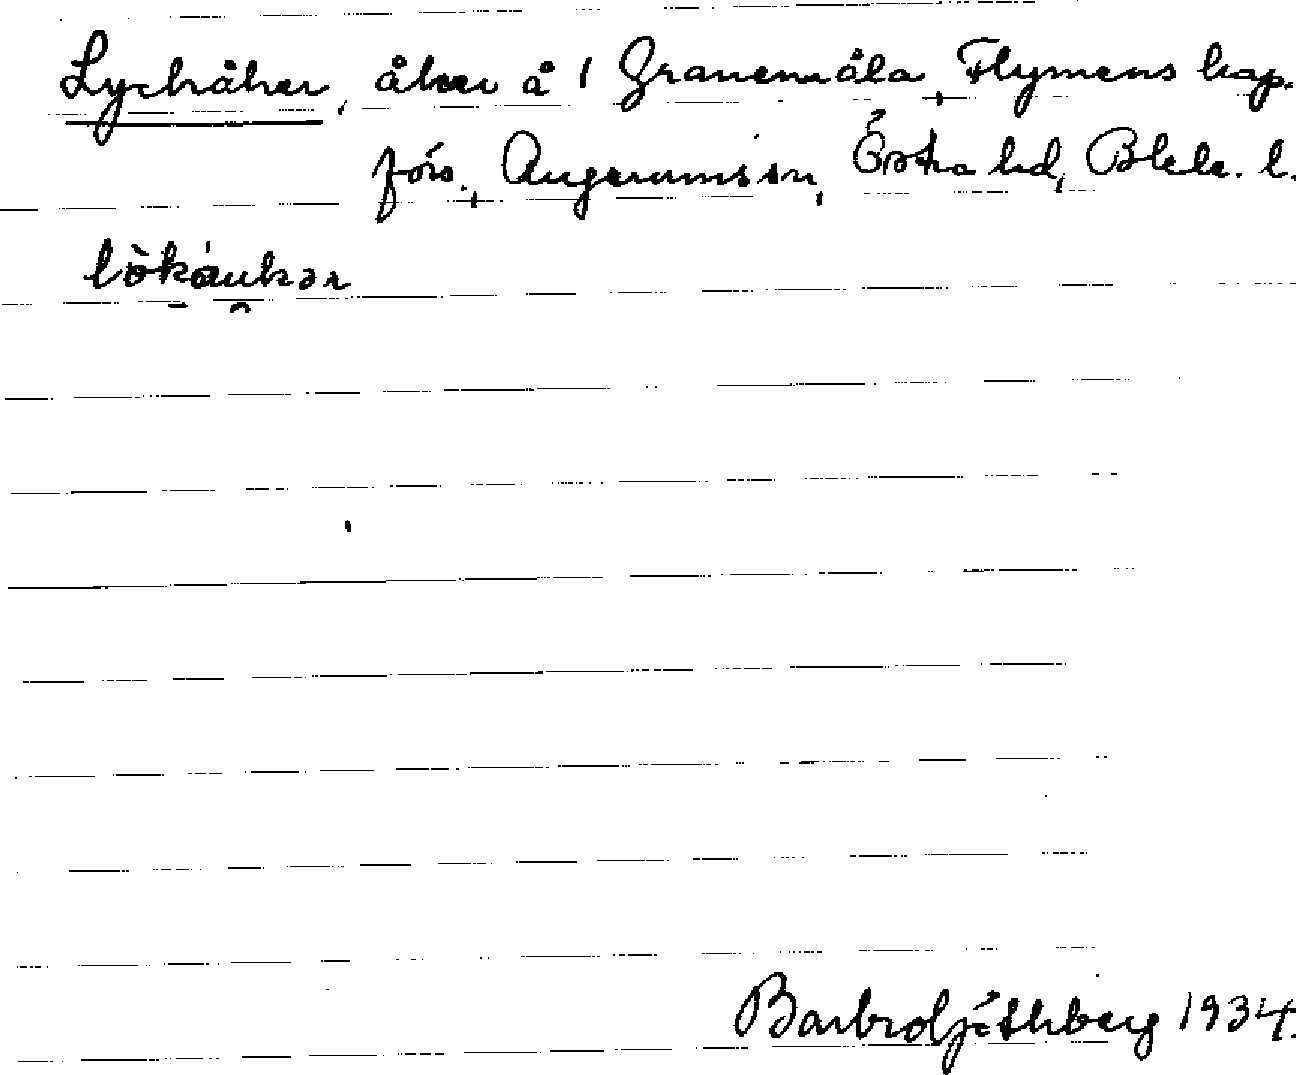 Lyckåker, åker å 1 Granemåla, Flymens kap.
förs., Augerums sn, Östra hd, Blek. l.
lökåukər
Barbro 1934.